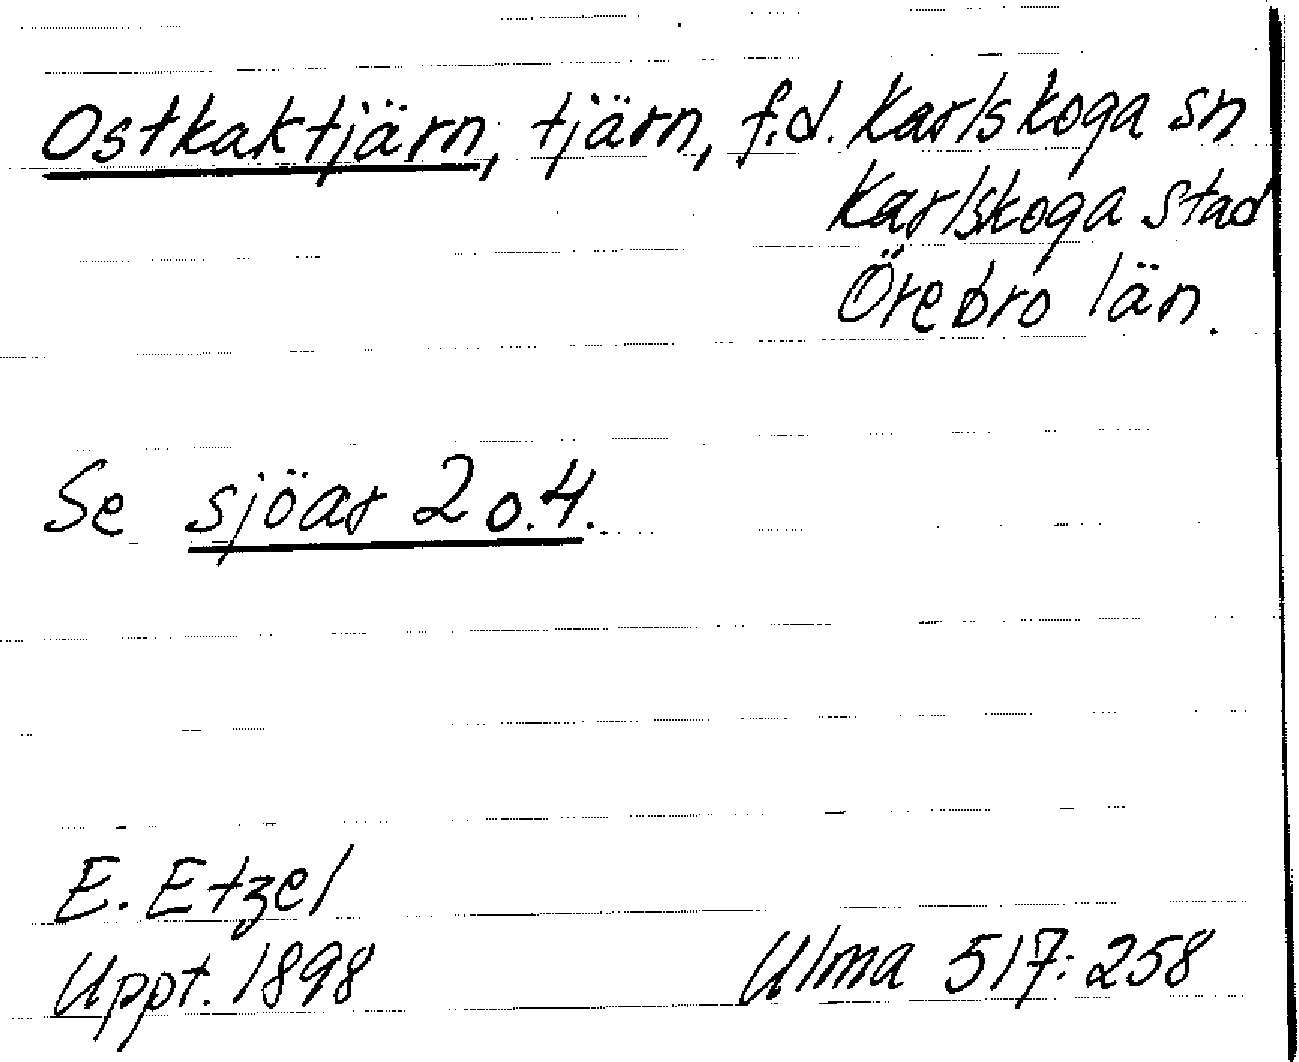 Ostkaktjärn, tjärn, f.d. Karlskoga sn
Karlskoga stad
Örebro län.
Se sjöar 2 o. 4.
E. Etzel
Uppt. 1898
Ulma 517:258